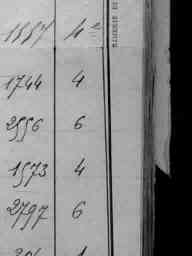 1557 4 e
1744 4
2556 6
1573 4
2797 6